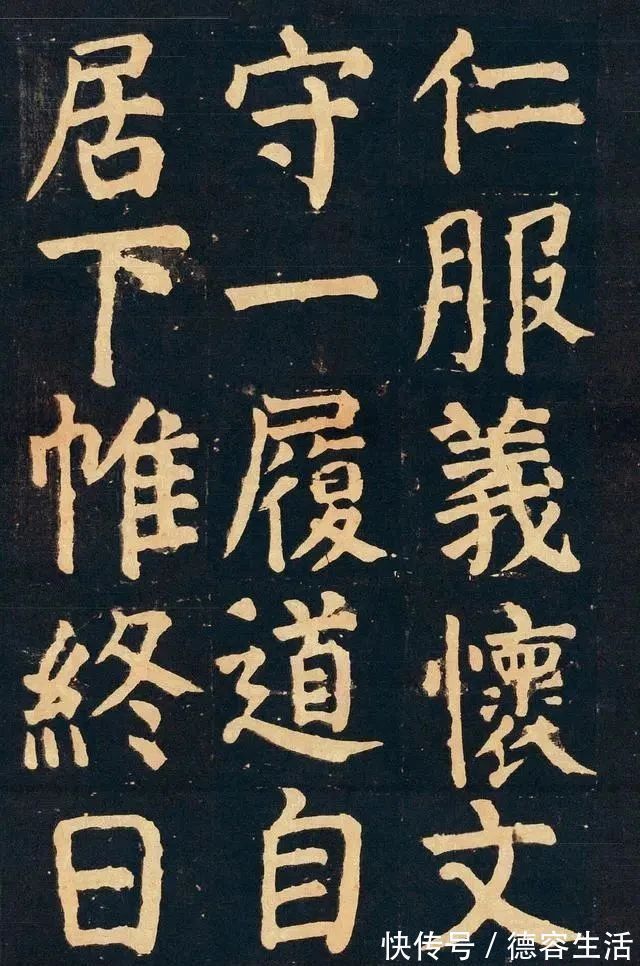 仁服義懷文
守一履道自
居下帷終日
快传号/德容生活